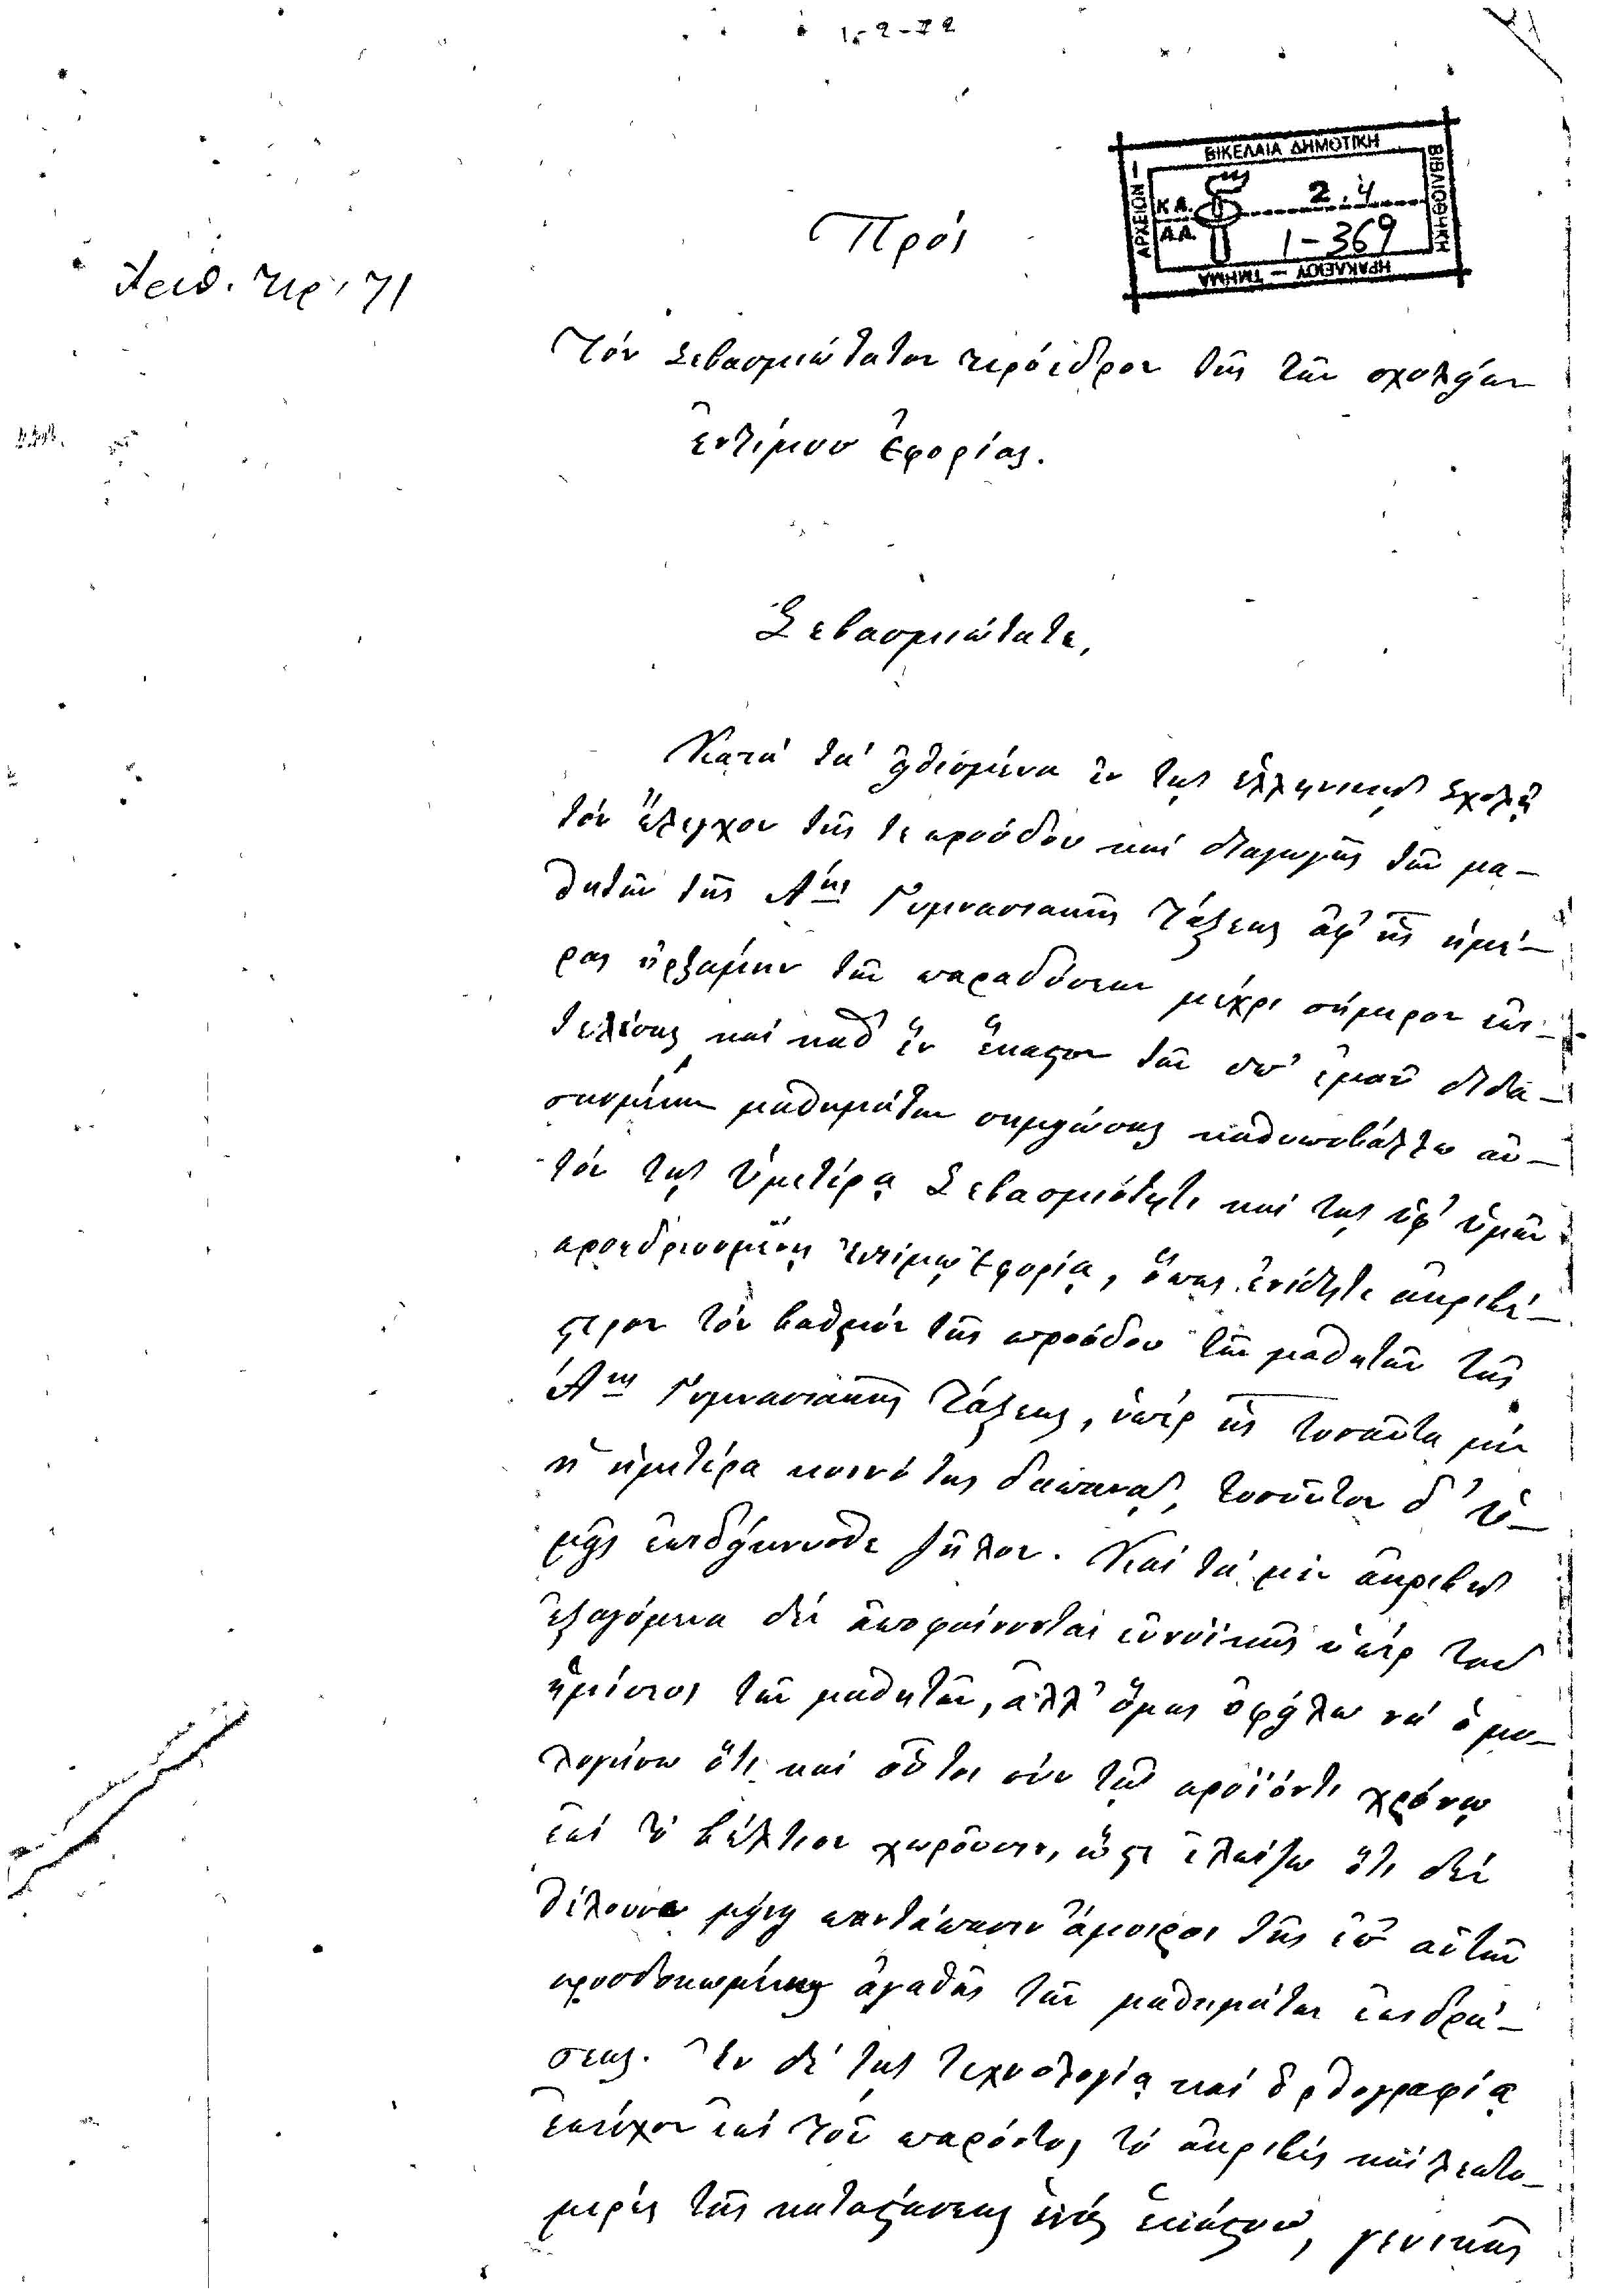 15-2-72
ΒΙΚΕΛΑΙΑ ΔΗΜΟΤΙΚΗ
ΒΙΒΛΙΟΘΗΚΗ
ΗΡΑΚΛΕΙΟΥ — ΤΜΗΜΑ
ΑΡΧΕΙΩΝ —
Κ.Α. 2.4
Α.Α. 1-369
Πρός
Ἀριθ. Πρ. 71
Τόν Σεβασμιώτατον πρόεδρον τῆς τῶν σχολείων
ἐντίμου Ἐφορίας.
Σεβασμιώτατε,
Κατά τά εἰθισμένα ἐν τῇ ἑλληνικῇ Σχολῇ
τόν ἔλεγχον τῆς τε προόδου καί διαγωγῆς τῶν μα-
θητῶν τῆς Αης Γυμνασιακῆς Τάξεως ἀφ' ἧς ἡμέ-
ρας ἠρξάμην τῶν παραδόσεων μέχρι σήμερον ἐπι-
τελέσας καί καθ' ἕν ἕκαστον τῶν ὑπ' ἐμοῦ διδα-
σκομένων μαθημάτων σημειώσας καθυποβάλλω αὐ-
τόν τῇ Ὑμετέρᾳ Σεβασμιότητι καί τῇ ὑφ' ὑμῶν
προεδρευομένῃ ἐντίμῳ Ἐφορίᾳ, ὅπως ἐνίδητε ἀκριβέ-
στερον τόν βαθμόν τῆς προόδου τῶν μαθητῶν τῆς
Αης Γυμνασιακῆς Τάξεως, ὑπέρ ἧς τοσαῦτα μέν
ἡ ἡμετέρα κοινότης δαπανᾷ, τοσοῦτον δ' ὑ-
μεῖς ἐπιδείκνυσθε ζῆλον. Καί τά μέν ἀκριβῆ
ἐξαγόμενα δέν ἀποφαίνονται εὐνοϊκῶς ὑπέρ τοῦ
ἡμίσεος τῶν μαθητῶν, ἀλλ' ὅμως ὀφείλω νά ὁμο-
λογήσω ὅτι καί οὗτοι σύν τῷ προϊόντι χρόνῳ
ἐπί τό βέλτιον χωροῦσιν, ὥστε ἐλπίζω ὅτι δέν
θέλουσι μείνῃ παντάπασιν ἄμοιροι τῆς ἐπ' αὐτῶν
προσδοκωμένης ἀγαθῆς τῶν μαθημάτων ἐπιδρά-
σεως. Ἐν δέ τῇ τεχνολογίᾳ καί ὀρθογραφίᾳ
ἐπέχον ἐπί τοῦ παρόντος τό ἀκριβές καί λεπτο-
μερές τῆς κατατάξεως ἑνός ἑκάστου, γενικῶς